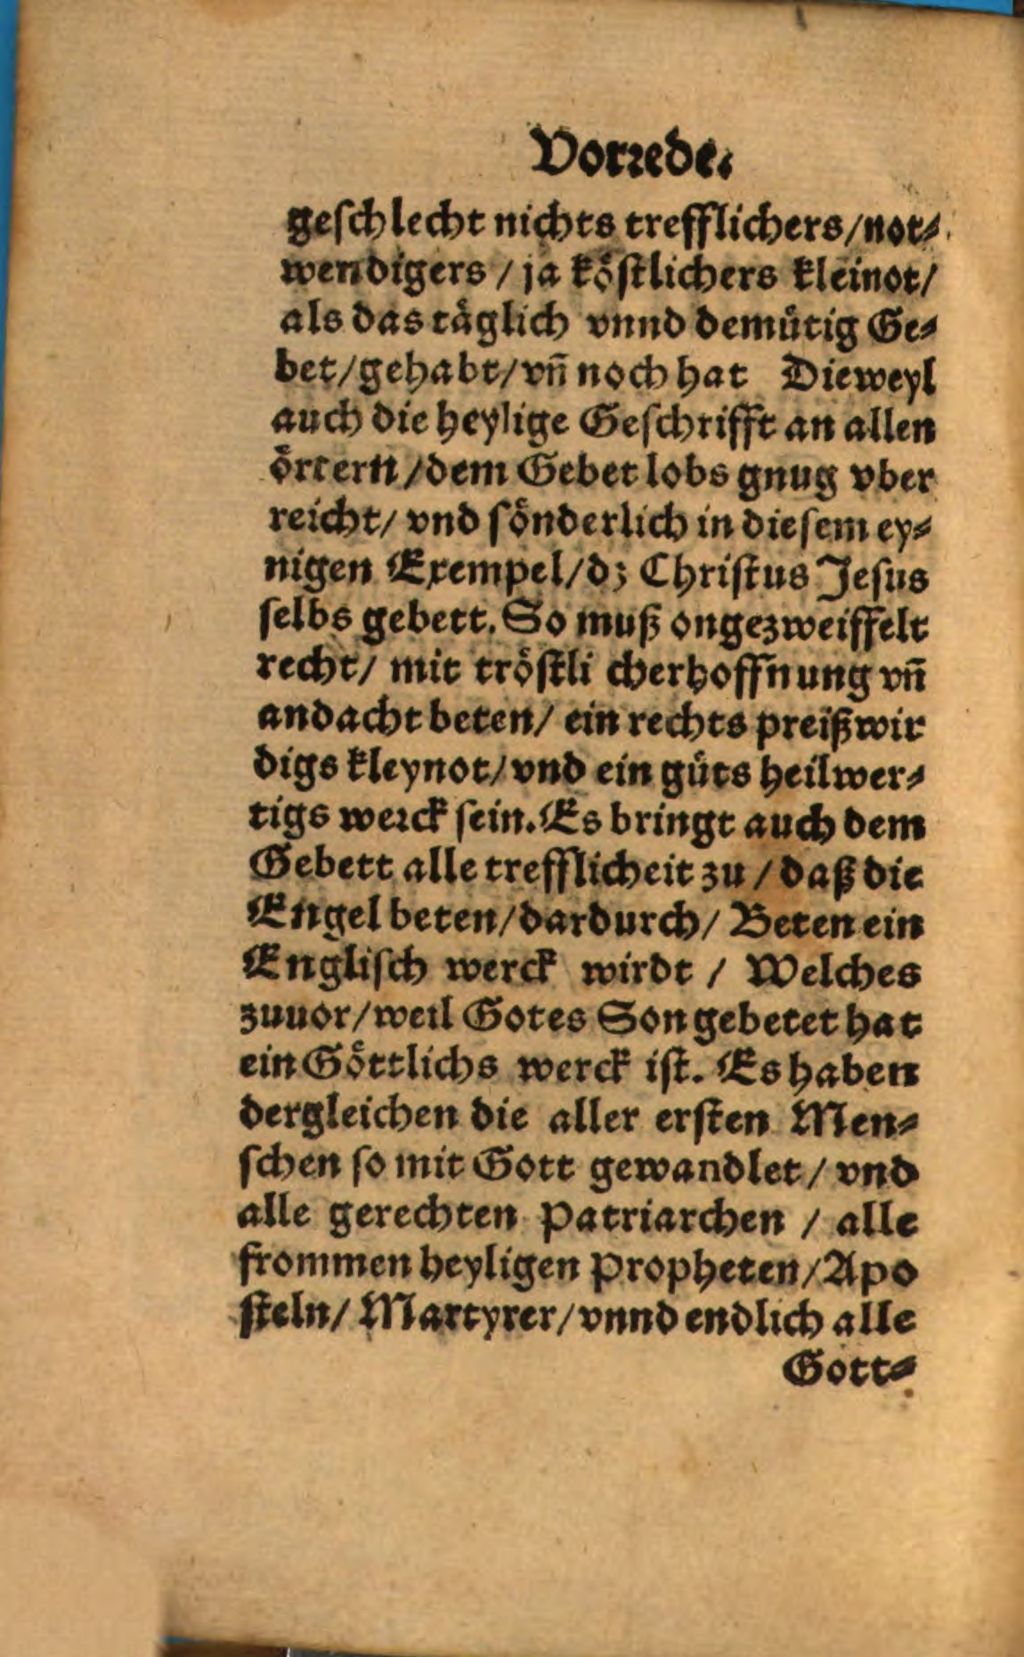 Vorrede.
geschlecht nichts trefflichers/not⸗
wendigers / ja koͤstlichers kleinot/
als das taͤglich vnnd demuͤtig Ge⸗
bet/gehabt/vn̄ noch hat Dieweyl
auch die heylige Geschrifft an allen
oͤrtern/dem Gebet lobs gnug vber
reicht/ vnd soͤnderlich in diesem ey⸗
nigen Exempel/dz Christus Jesus
selbs gebett. So muß ongezweiffelt
recht/ mit troͤstli cherhoffnung vn̄
andacht beten/ ein rechts preißwir
digs kleynot/vnd ein guͤts heilwer⸗
tigs werck sein. Es bringt auch dem
Gebett alle trefflicheit zu / daß die
Engel beten/dardurch/ Beten ein
Englisch werck wirdt / Welches
zuuor/weil Gotes Son gebetet hat
ein Goͤttlichs werck ist. Es haben
dergleichen die aller ersten Men⸗
schen so mit Gott gewandlet/ vnd
alle gerechten Patriarchen / alle
frommen heyligen Propheten/Apo
steln/ Martyrer/vnnd endlich alle
Gott⸗